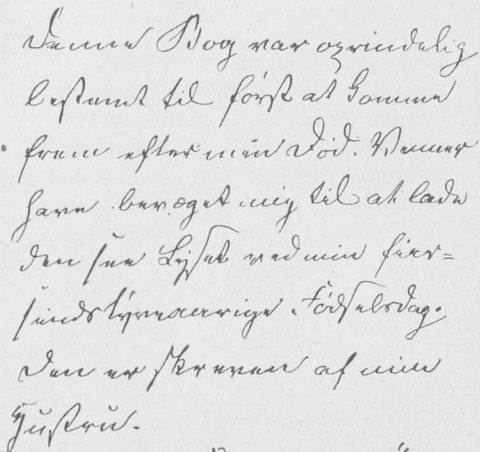 Denne Bog var oprindelig
bestemt til först at komme
frem efter min Död. Venner
have bevæget mig til at lade
den see Lyset ved min fiir=
sindstyveaarige Födselsdag.
Den er skreven af min
Hustru.